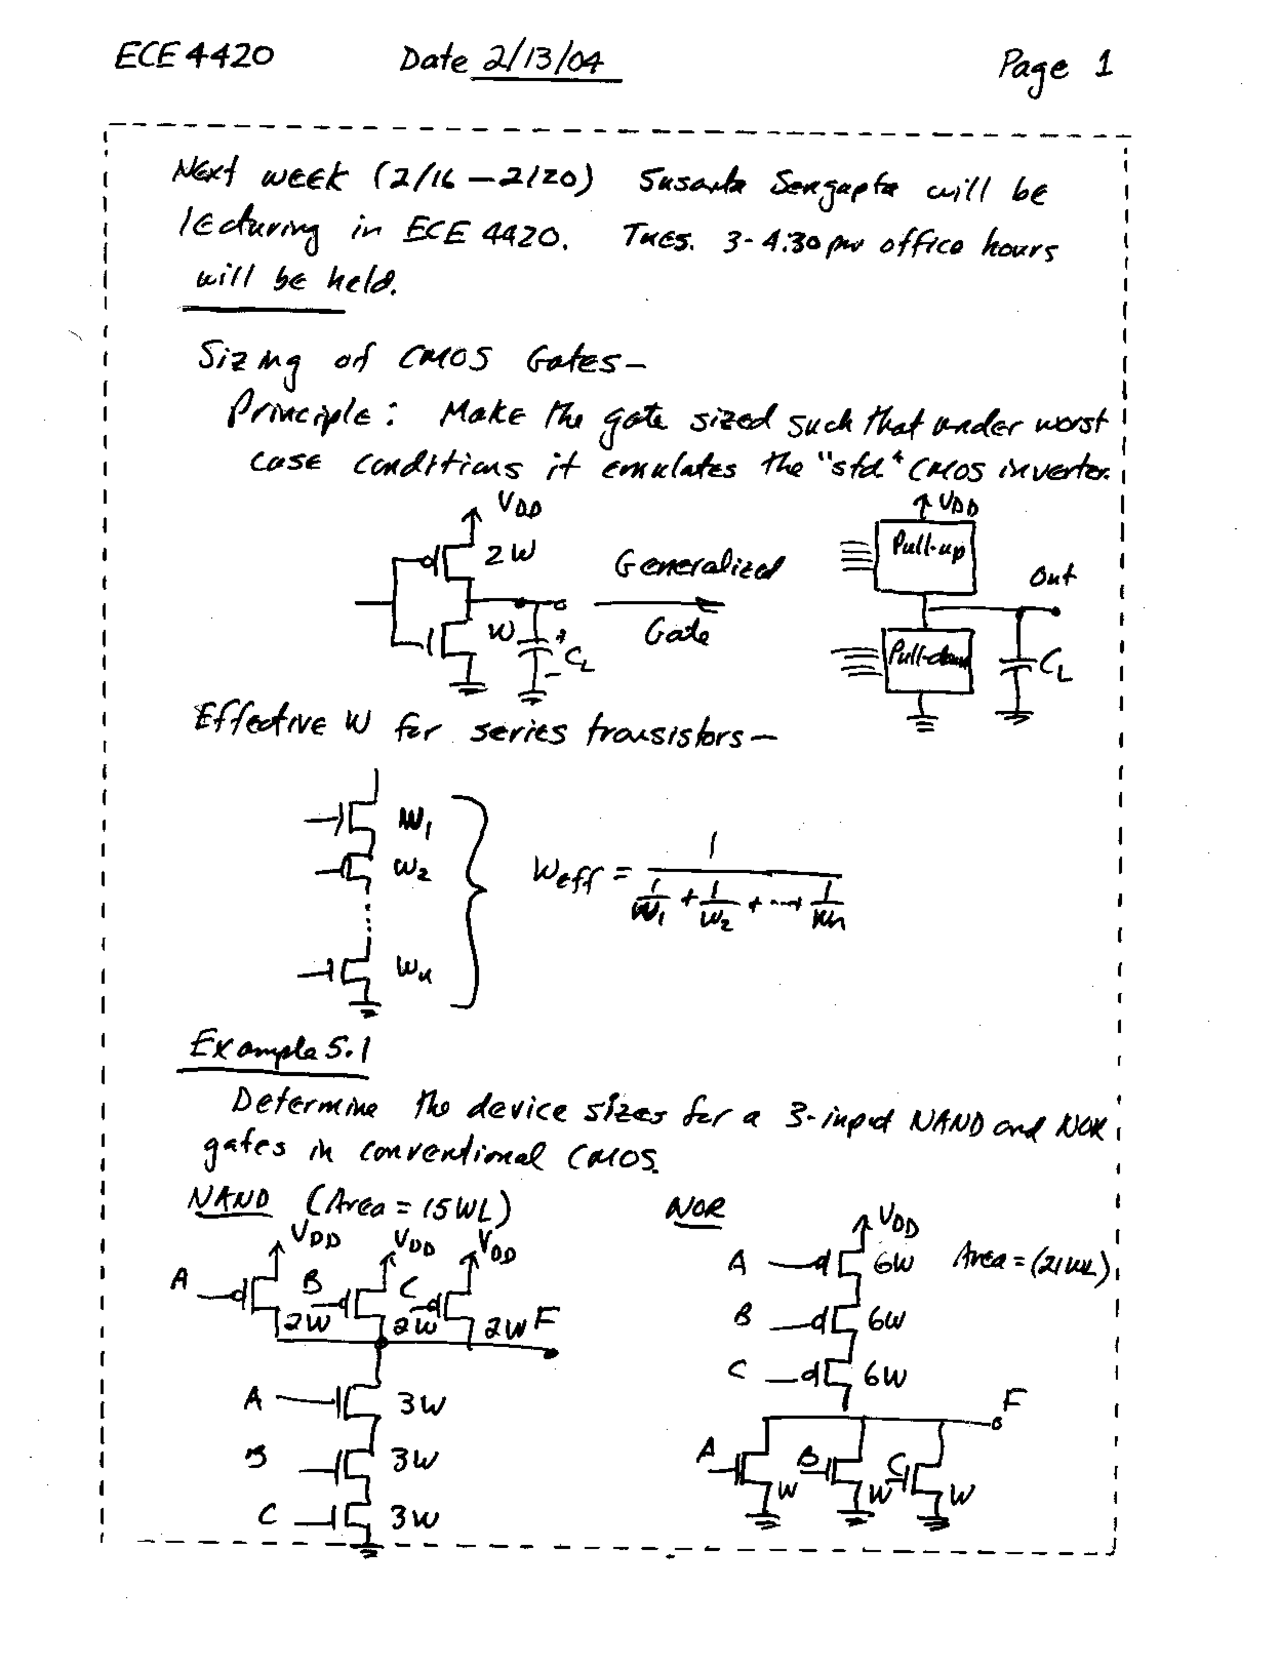 ECE 4420 Date 2/13/04 Page 1
Next week (2/16 - 2/20) Susanta Sengupta will be
lecturing in ECE 4420. Tues. 3-4:30pm office hours
will be held.
Sizing of CMOS Gates-
Principle: Make the gate sized such that under worst
case conditions it emulates the "std" CMOS inverter.
VDD
2W
W
+
CL
-
Generalized
Gate
VDD
Pull-up
Out
Pull-down
CL
Effective W for series transistors-
W1
W2
Wn
Weff = 1 / (1/W1 + 1/W2 + ... + 1/Wn)
Example 5.1
Determine the device sizes for a 3-input NAND and NOR
gates in conventional CMOS.
NAND (Area = 15WL)
VDD VDD VDD
A B C
2W 2W 2W F
A 3W
B 3W
C 3W
NOR
VDD
A 6W Area = (21WL)
B 6W
C 6W
F
A B C
W W W